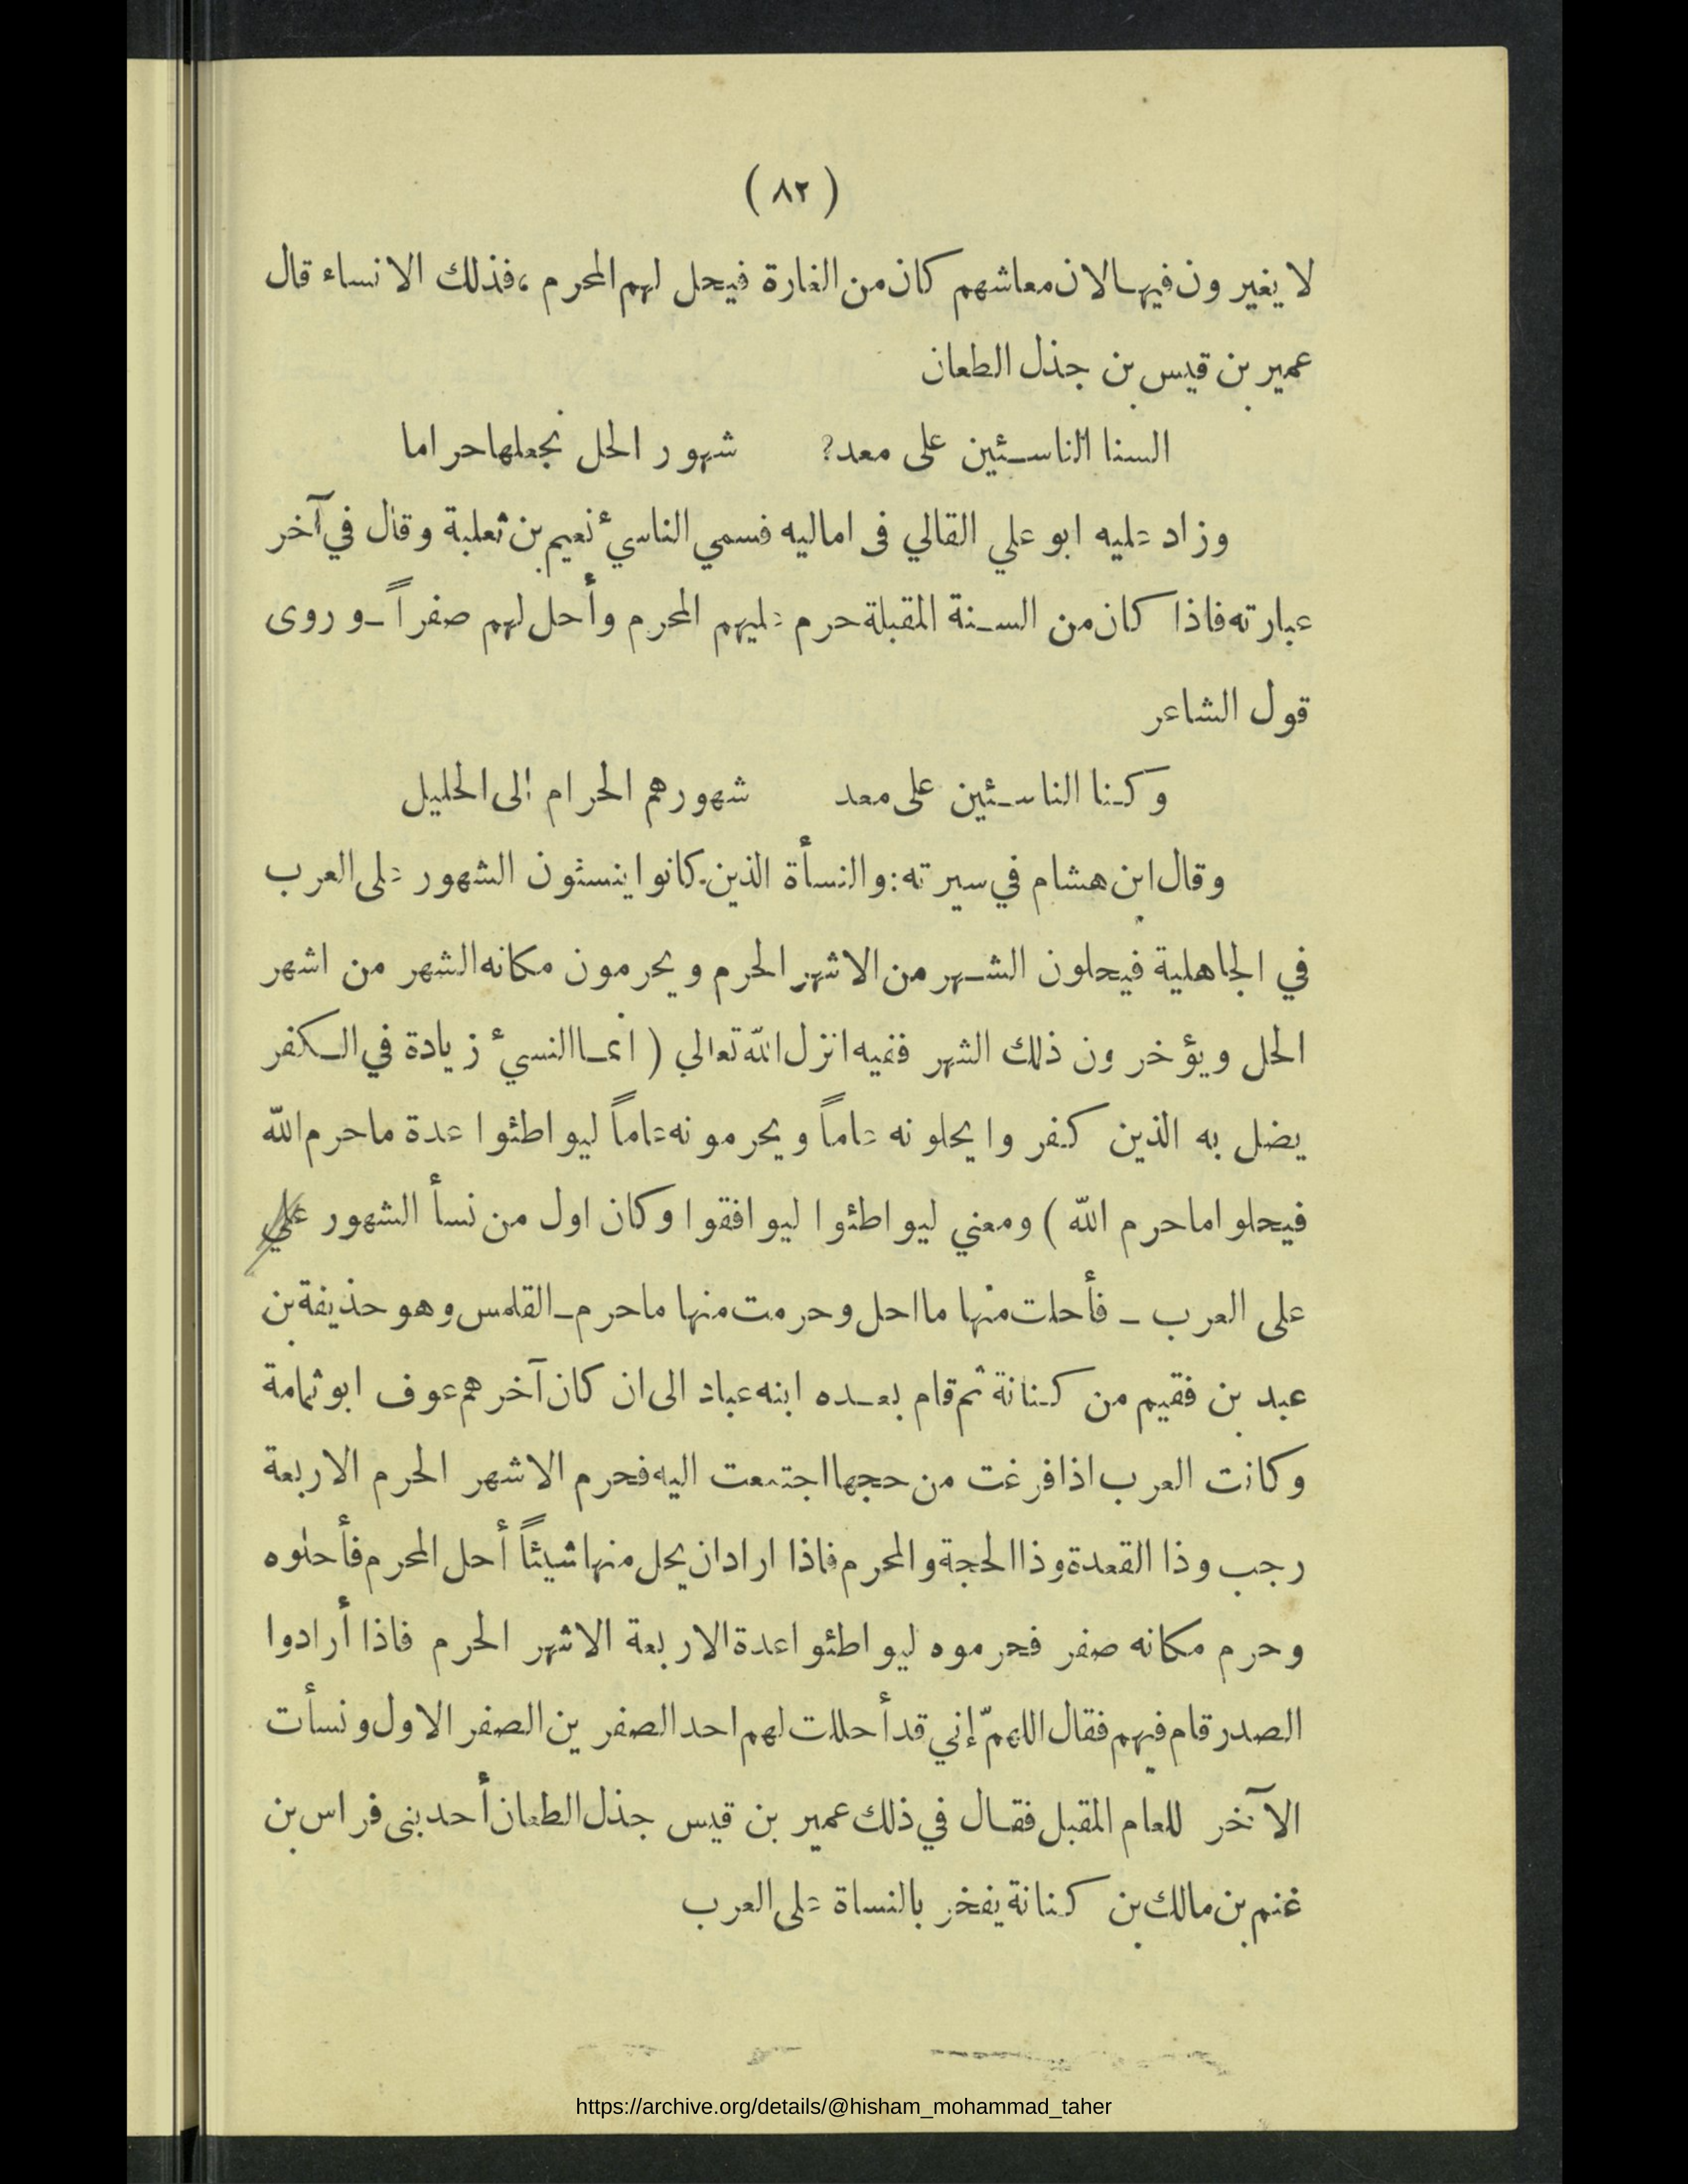 ( ٨٢ )
لا يغيرون فيها لان معاشهم كان من الغارة فيحل لهم المحرم ، فذلك الانساء قال
عمير بن قيس بن جذل الطعان
السنا الناسئين على معد؟ شهور الحل نجعلها حراما
وزاد عليه ابو علي القالي فى اماليه فسمي الناسيء نعيم بن ثعلبة وقال في آخر
عبارته فاذا كان من السنة المقبلة حرم عليهم المحرم وأحل لهم صفراً ـ وروى
قول الشاعر
وكنا الناسئين على معد شهورهم الحرام الى الحليل
وقال ابن هشام في سيرته : والنسأة الذين كانوا ينسئون الشهور على العرب
في الجاهلية فيحلون الشهر من الاشهر الحرم ويحرمون مكانه الشهر من اشهر
الحل ويؤخرون ذلك الشهر ففيه انزل الله تعالي ( انما النسيء زيادة في الكفر
يضل به الذين كفروا يحلونه عاماً ويحرمونه عاماً ليواطئوا عدة ما حرم الله
فيحلوا ما حرم الله ) ومعني ليواطئوا ليوافقوا وكان اول من نسأ الشهور علي
على العرب ـ فأحلت منها ما احل وحرمت منها ما حرم ـ القلمس وهو حذيفة بن
عبد بن فقيم من كنانة ثم قام بعده ابنه عباد الى ان كان آخرهم عوف ابو ثمامة
وكانت العرب اذا فرغت من حجها اجتمعت اليه فحرم الاشهر الحرم الاربعة
رجب وذا القعدة وذا الحجة والمحرم فاذا اراد ان يحل منها شيئاً أحل المحرم فأحلوه
وحرم مكانه صفر فحرموه ليواطئوا عدة الاربعة الاشهر الحرم فاذا أرادوا
الصدر قام فيهم فقال اللهمّ إني قد أحللت لهم احد الصفرين الصفر الاول ونسأت
الآخر للعام المقبل فقال في ذلك عمير بن قيس جذل الطعان أحد بنى فراس بن
غنم بن مالك بن كنانة يفخر بالنساة على العرب
https://archive.org/details/@hisham_mohammad_taher